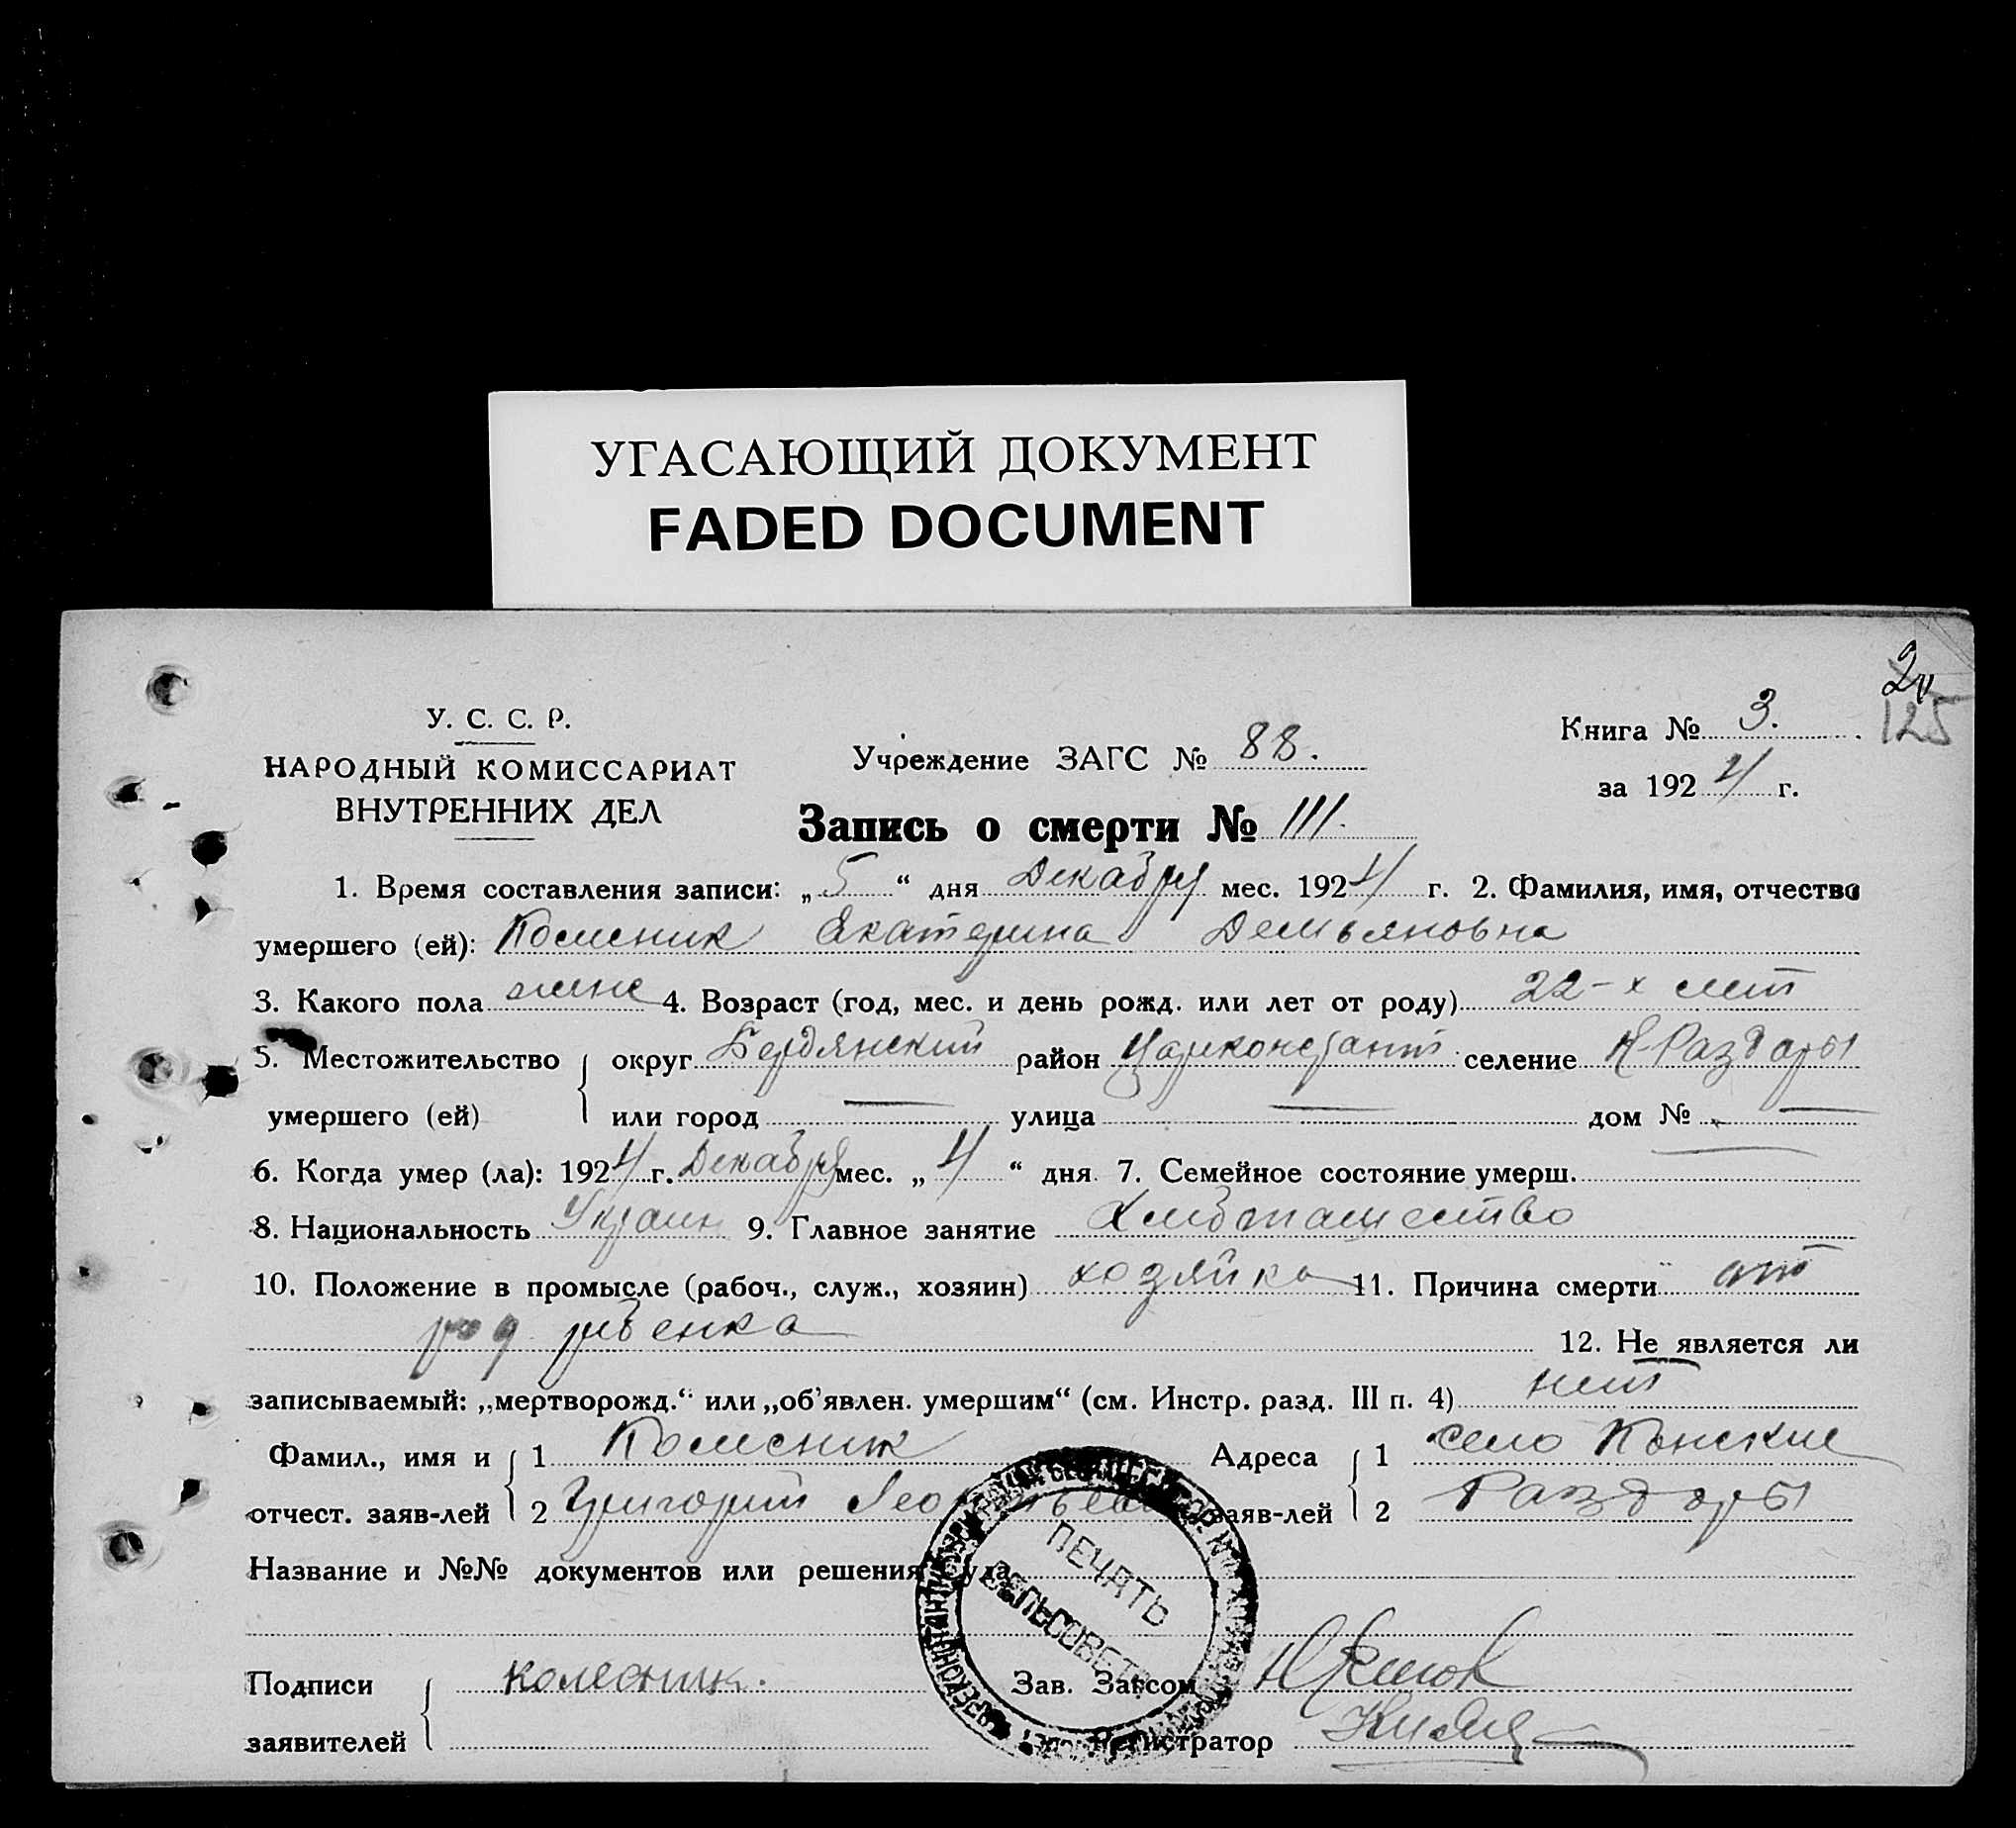 УГАСАЮЩИЙ ДОКУМЕНТ
FADED DOCUMENT
2
125
У. С. С. Р.
НАРОДНЫЙ КОМИССАРИАТ
ВНУТРЕННИХ ДЕЛ
Учреждение ЗАГС № 88.
Книга № 3.
за 1924 г.
Запись о смерти № 111.
1. Время составления записи: „5“ дня Декабря мес. 1924 г. 2. Фамилия, имя, отчество
умершего (ей): Колесник Екатерина Демьяновна
3. Какого пола жене 4. Возраст (год, мес. и день рожд. или лет от роду) 22-х лет
5. Местожительство округ Бердянский район Царконстант. селение К-Раздоры
умершего (ей) или город — улица — дом № —
6. Когда умер (ла): 1924 г. Декабря мес. „4“ дня 7. Семейное состояние умерш. —
8. Национальность Украин 9. Главное занятие Хлебопашество
10. Положение в промысле (рабоч., служ., хозяин) хозяйка 11. Причина смерти от
род ребенка 12. Не является ли
записываемый: „мертворожд.“ или „об'явлен. умершим“ (см. Инстр. разд. III п. 4) нет
Фамил., имя и 1 Колесник Адреса 1 село Конские
отчест. заяв-лей 2 Григорий заяв-лей 2 Раздоры
Название и №№ документов или решения суда
ПЕЧАТЬ
СЕЛЬСОВЕТА
Подписи колесник. Зав. Загсом
заявителей Регистратор